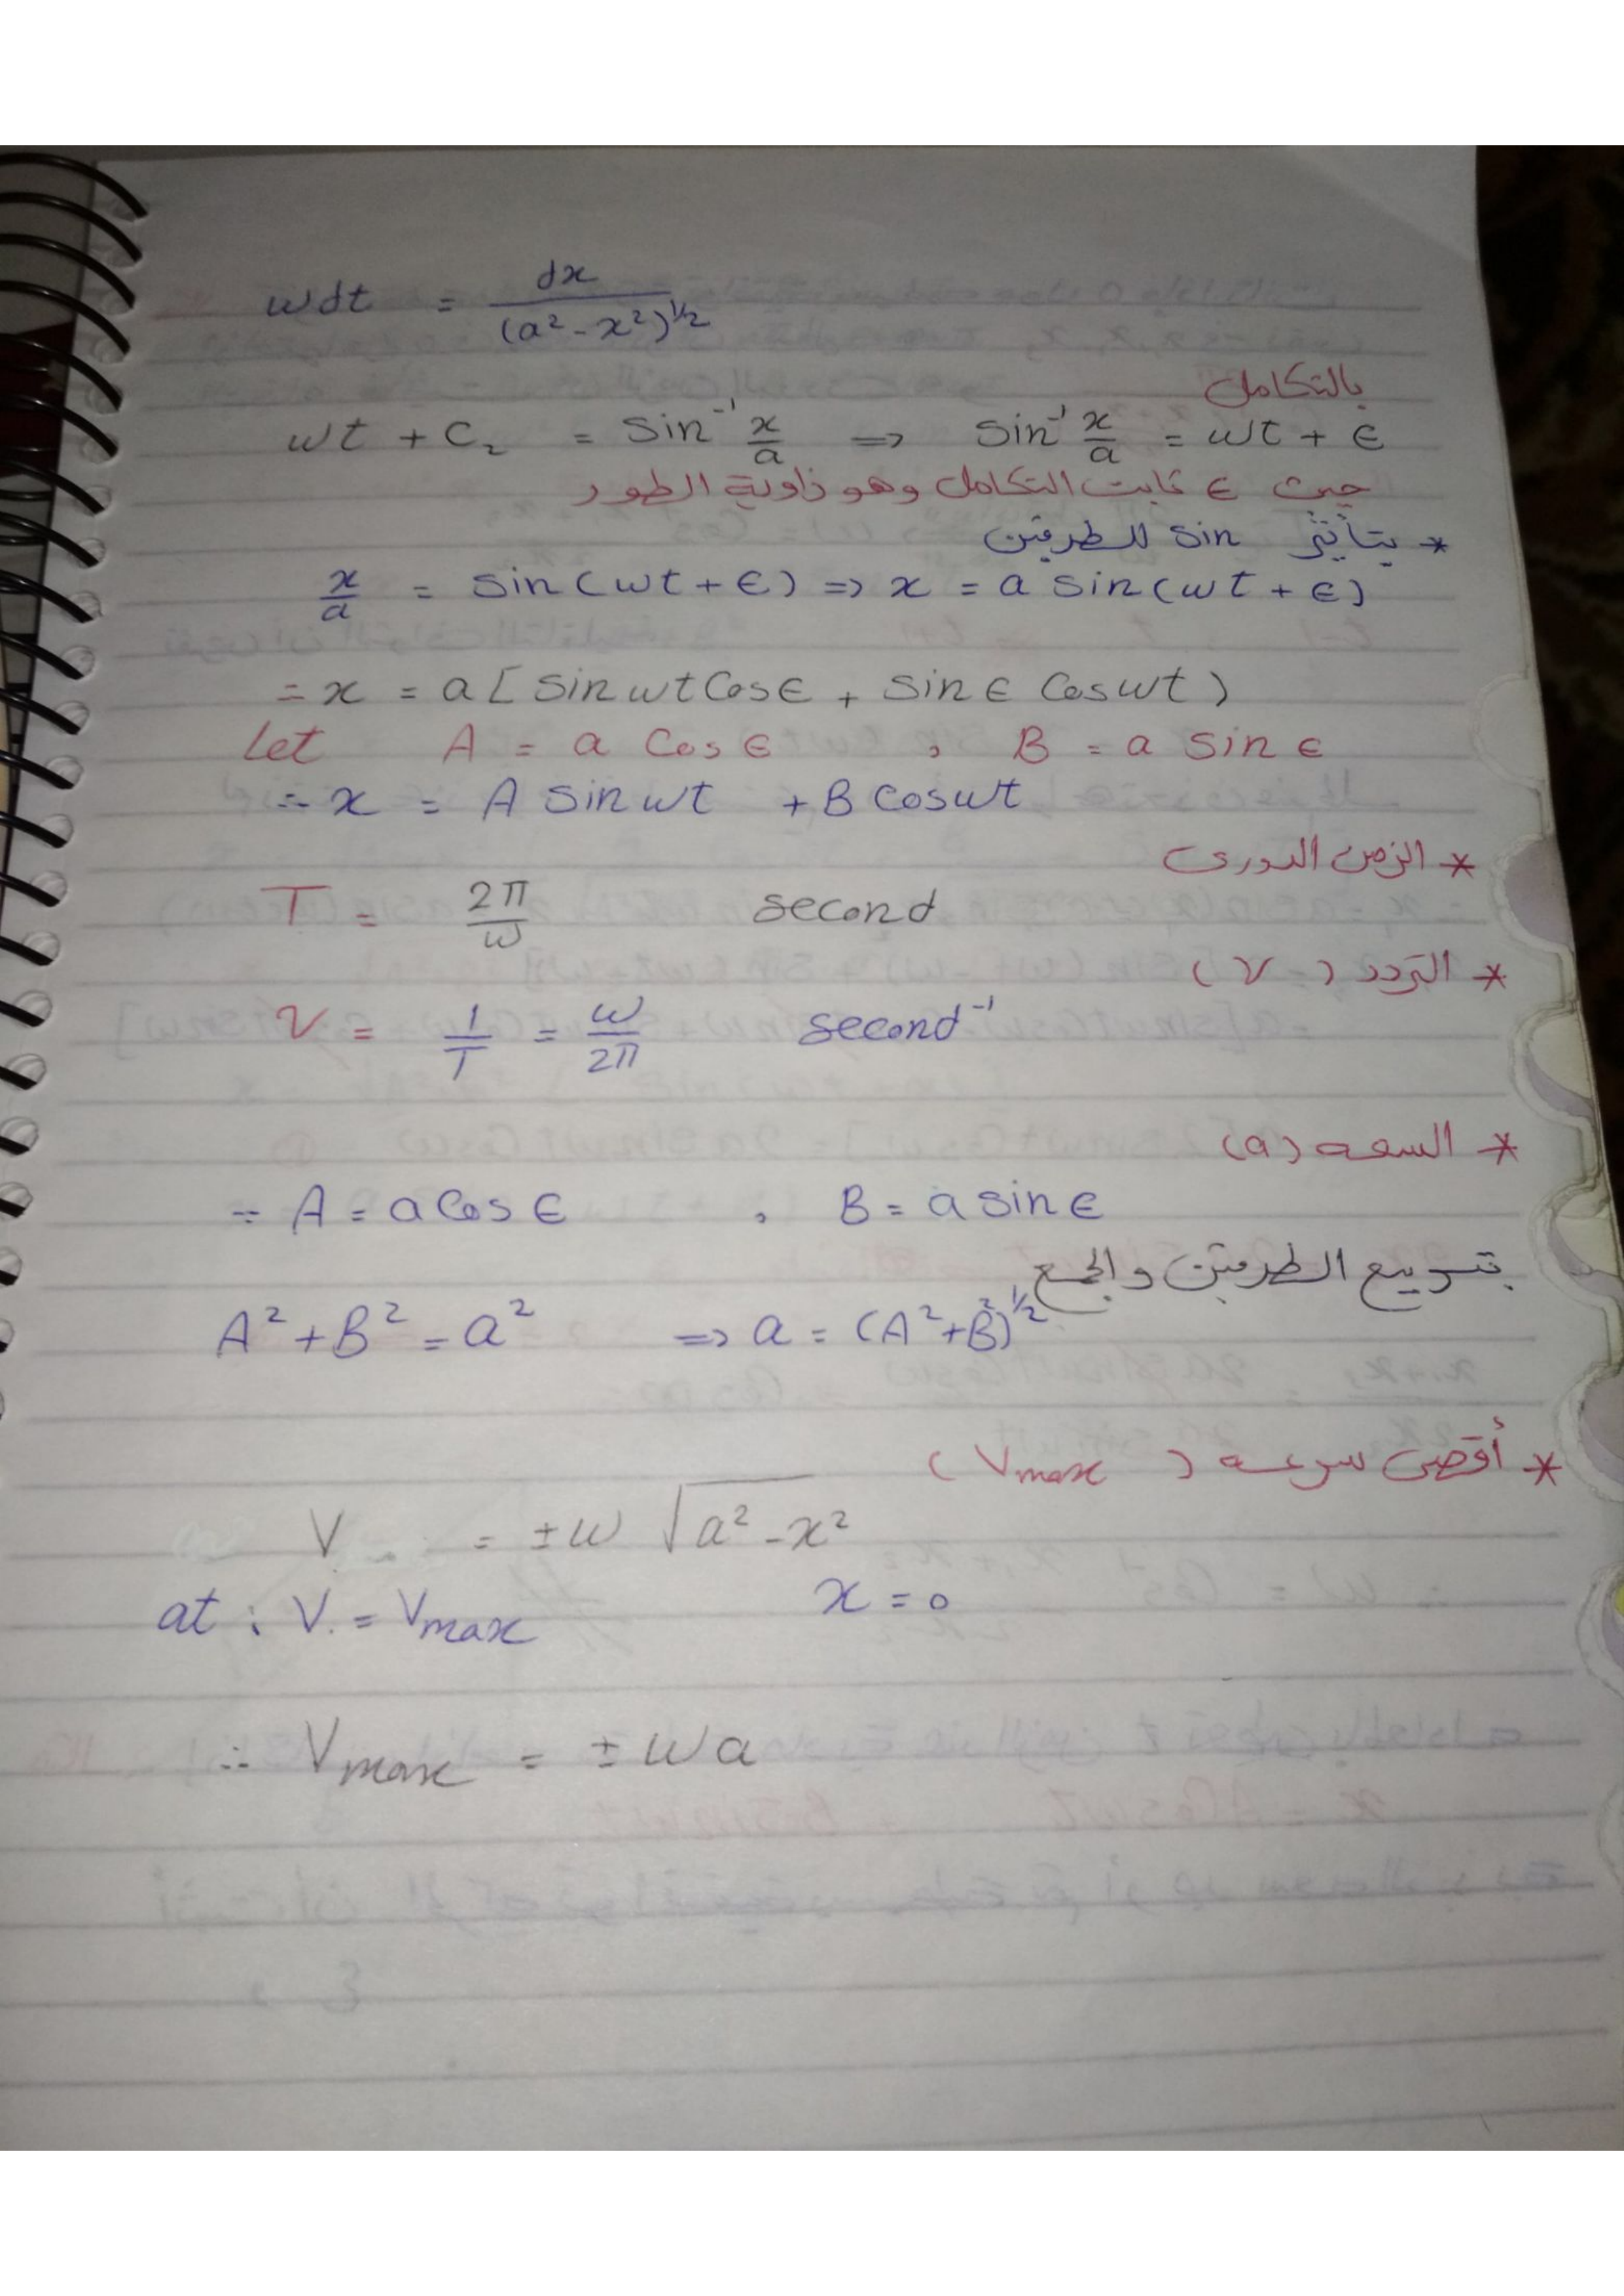 wdt = dx / (a² - x²)^½
بالتكامل
wt + C₂ = Sin⁻¹ x/a => Sin⁻¹ x/a = wt + ϵ
حيث ϵ ثابت التكامل وهو زاوية الطور
* بتأثير sin للطرفين
x/a = Sin(wt + ϵ) => x = a Sin(wt + ϵ)
= x = a [Sin wt Cos ϵ + Sin ϵ Cos wt)
Let A = a Cos ϵ , B = a Sin ϵ
∴ x = A Sin wt + B Cos wt
* الزمن الدورى
T = 2π/w second
* التردد (ν)
ν = 1/T = w/2π second⁻¹
* السعه (a)
∵ A = a Cos ϵ , B = a Sin ϵ
بتربيع الطرفين والجمع
A² + B² = a² => a = (A² + B²)^½
* أقصى سرعه (Vmax)
V = ± w √(a² - x²)
at : V = Vmax x = 0
∴ Vmax = ± wa